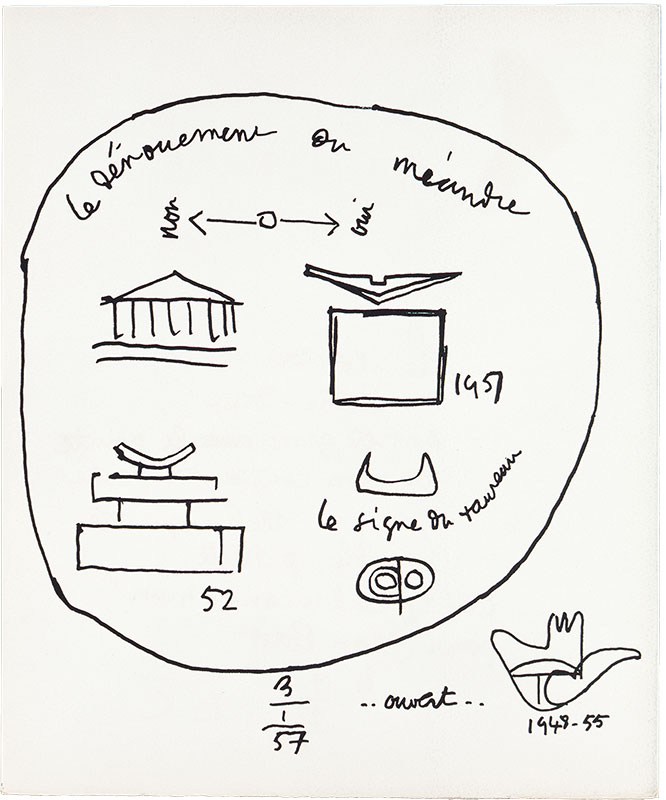 le dénouement du méandre
non oui
1951
le signe du taureau
52
3
1
57
..ouvert..
1948-55